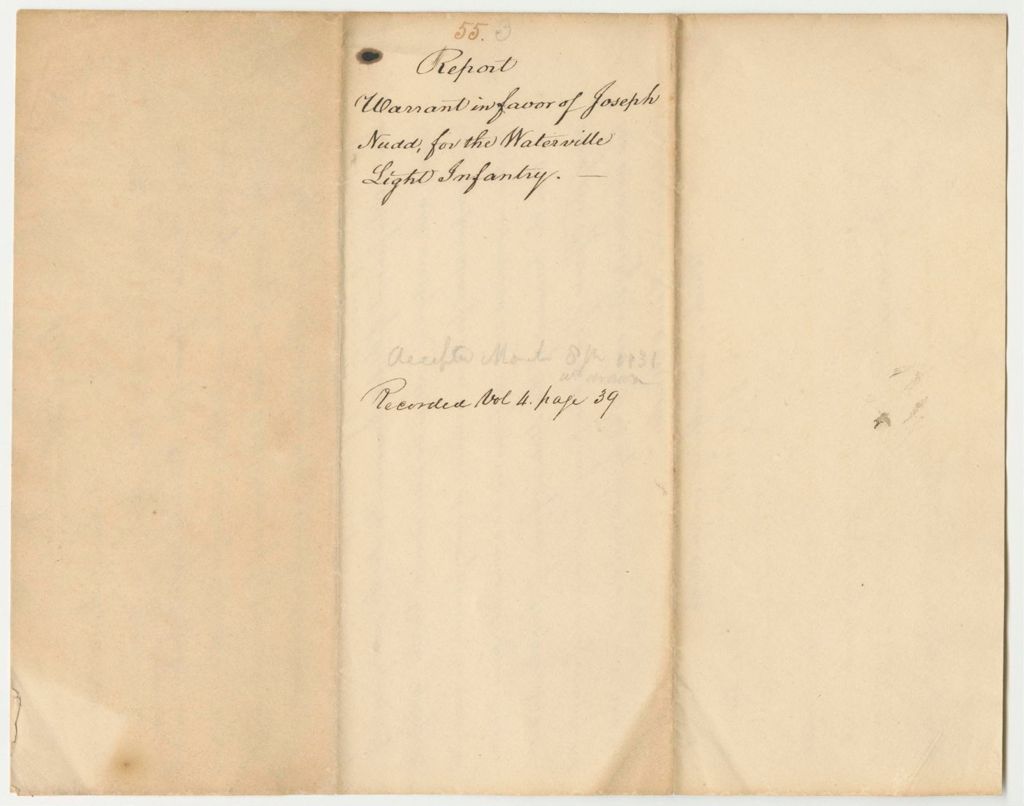 55.
Report
Warrant in favor of Joseph
Nudd, for the Waterville
Light Infantry. —
March 8th 1831
Recorded Vol 4. page 39